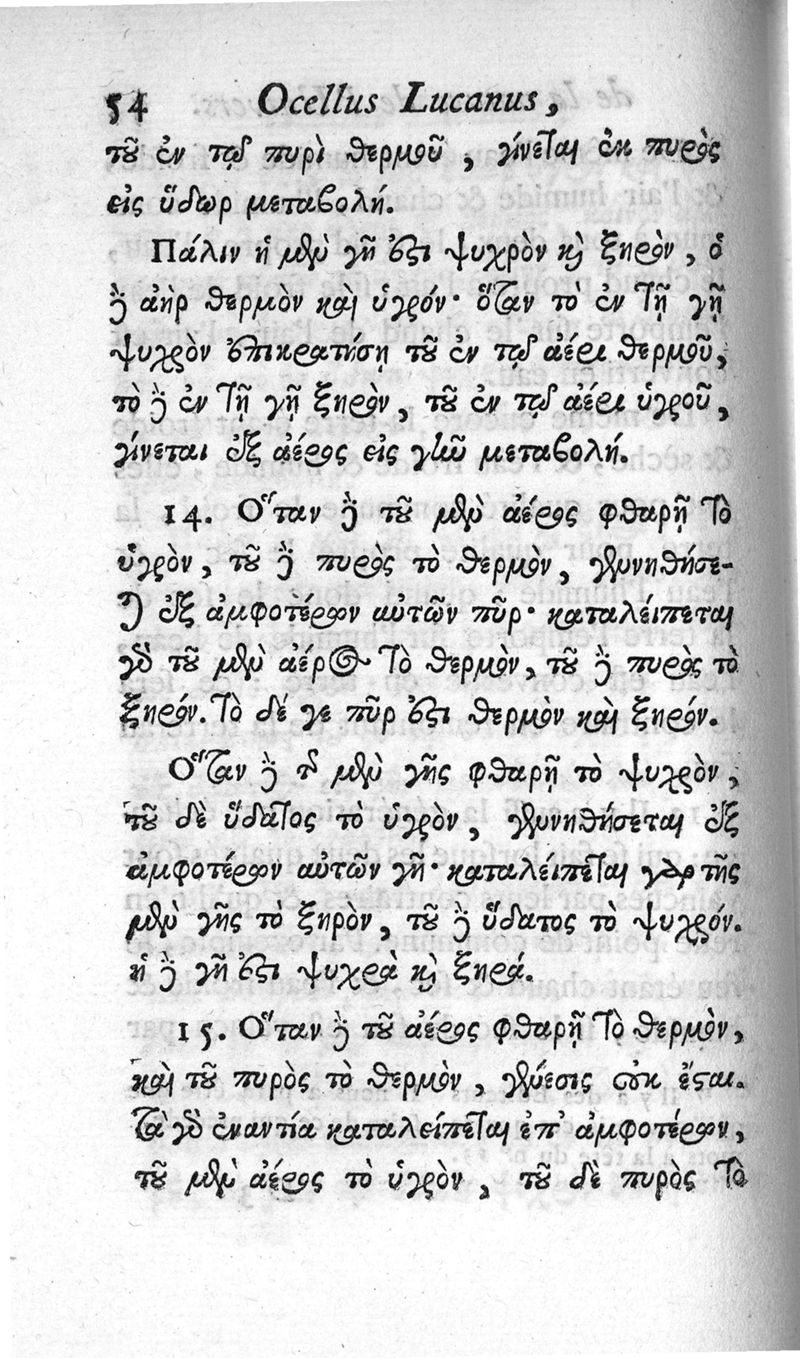 54 Ocellus Lucanus,
τοῦ ἐν τῷ πυρὶ θερμοῦ, γίνεται ἐκ πυρὸς
εἰς ὕδωρ μεταβολή.
Πάλιν ἡ μὲν γῆ ἐστι ψυχρὸν καὶ ξηρὸν, ὁ
δὲ ἀὴρ θερμὸν καὶ ὑγρόν· ὅταν τὸ ἐν τῇ γῇ
ψυχρὸν ἐπικρατήσῃ τοῦ ἐν τῷ ἀέρι θερμοῦ,
τὸ δὲ ἐν τῇ γῇ ξηρὸν, τοῦ ἐν τῷ ἀέρι ὑγροῦ,
γίνεται ἐξ ἀέρος εἰς γῆν μεταβολή.
14. Ὅταν δὲ τοῦ μὲν ἀέρος φθαρῇ τὸ
ὑγρὸν, τοῦ δὲ πυρὸς τὸ θερμὸν, γεννηθήσε-
ται ἐξ ἀμφοτέρων αὐτῶν πῦρ· καταλείπεται
γὰρ τοῦ μὲν ἀέρος τὸ θερμὸν, τοῦ δὲ πυρὸς τὸ
ξηρόν. Τὸ δέ γε πῦρ ἐστι θερμὸν καὶ ξηρόν.
Ὅταν δὲ τῆς μὲν γῆς φθαρῇ τὸ ψυχρὸν,
τοῦ δὲ ὕδατος τὸ ὑγρὸν, γεννηθήσεται ἐξ
ἀμφοτέρων αὐτῶν γῆ· καταλείπεται γὰρ τῆς
μὲν γῆς τὸ ξηρὸν, τοῦ δὲ ὕδατος τὸ ψυχρόν.
ἡ δὲ γῆ ἐστι ψυχρὰ καὶ ξηρά.
15. Ὅταν δὲ τοῦ ἀέρος φθαρῇ τὸ θερμὸν,
καὶ τοῦ πυρὸς τὸ θερμὸν, γένεσις οὐκ ἔσται.
Τὰ γὰρ ἐναντία καταλείπεται ἐπ' ἀμφοτέρων,
τοῦ μὲν ἀέρος τὸ ὑγρὸν, τοῦ δὲ πυρὸς τὸ